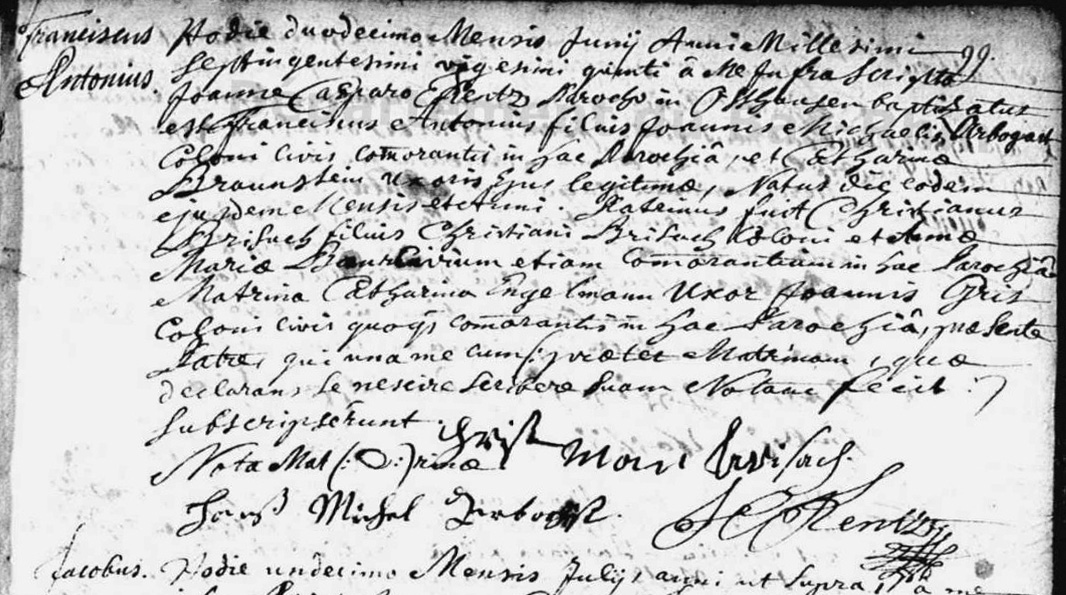 Franciscus
Antonius.
99.
Hodie duodecimo Mensis Junij Anni Millesimi
Septingentesimi vigesimi quinti â Me Infra Scripto
Joanne Casparo Parocho in baptizatus
est Franciscus Antonius filius Joannis Michaelis Arbogast
Coloni Civis com̄orantis in hac Parochiâ, et Catharinæ
Braunstein Uxoris Ejus legitimæ, Natus die eodem
ejusdem Mensis et Anni. Patrinus fuit Christianus
Brisach filius Christiani Brisach Coloni et Annæ
Mariæ etiam Com̄orantium in hac Parochiâ
Matrina Catharina Engelmann Uxor Joannis
Coloni Civis quoq3 com̄orantis in hac Parochiâ, præsente
Patre, qui una me cum (: præter Matrinam, quæ
declarans se nescire scribere suam Notam fecit :)
Subscripserunt
Christ Brisach
Nota Mat (: :) rinæ
Hanß Michel
Jacobus. Hodie undecimo Mensis Julij, anni ut Supra, à me